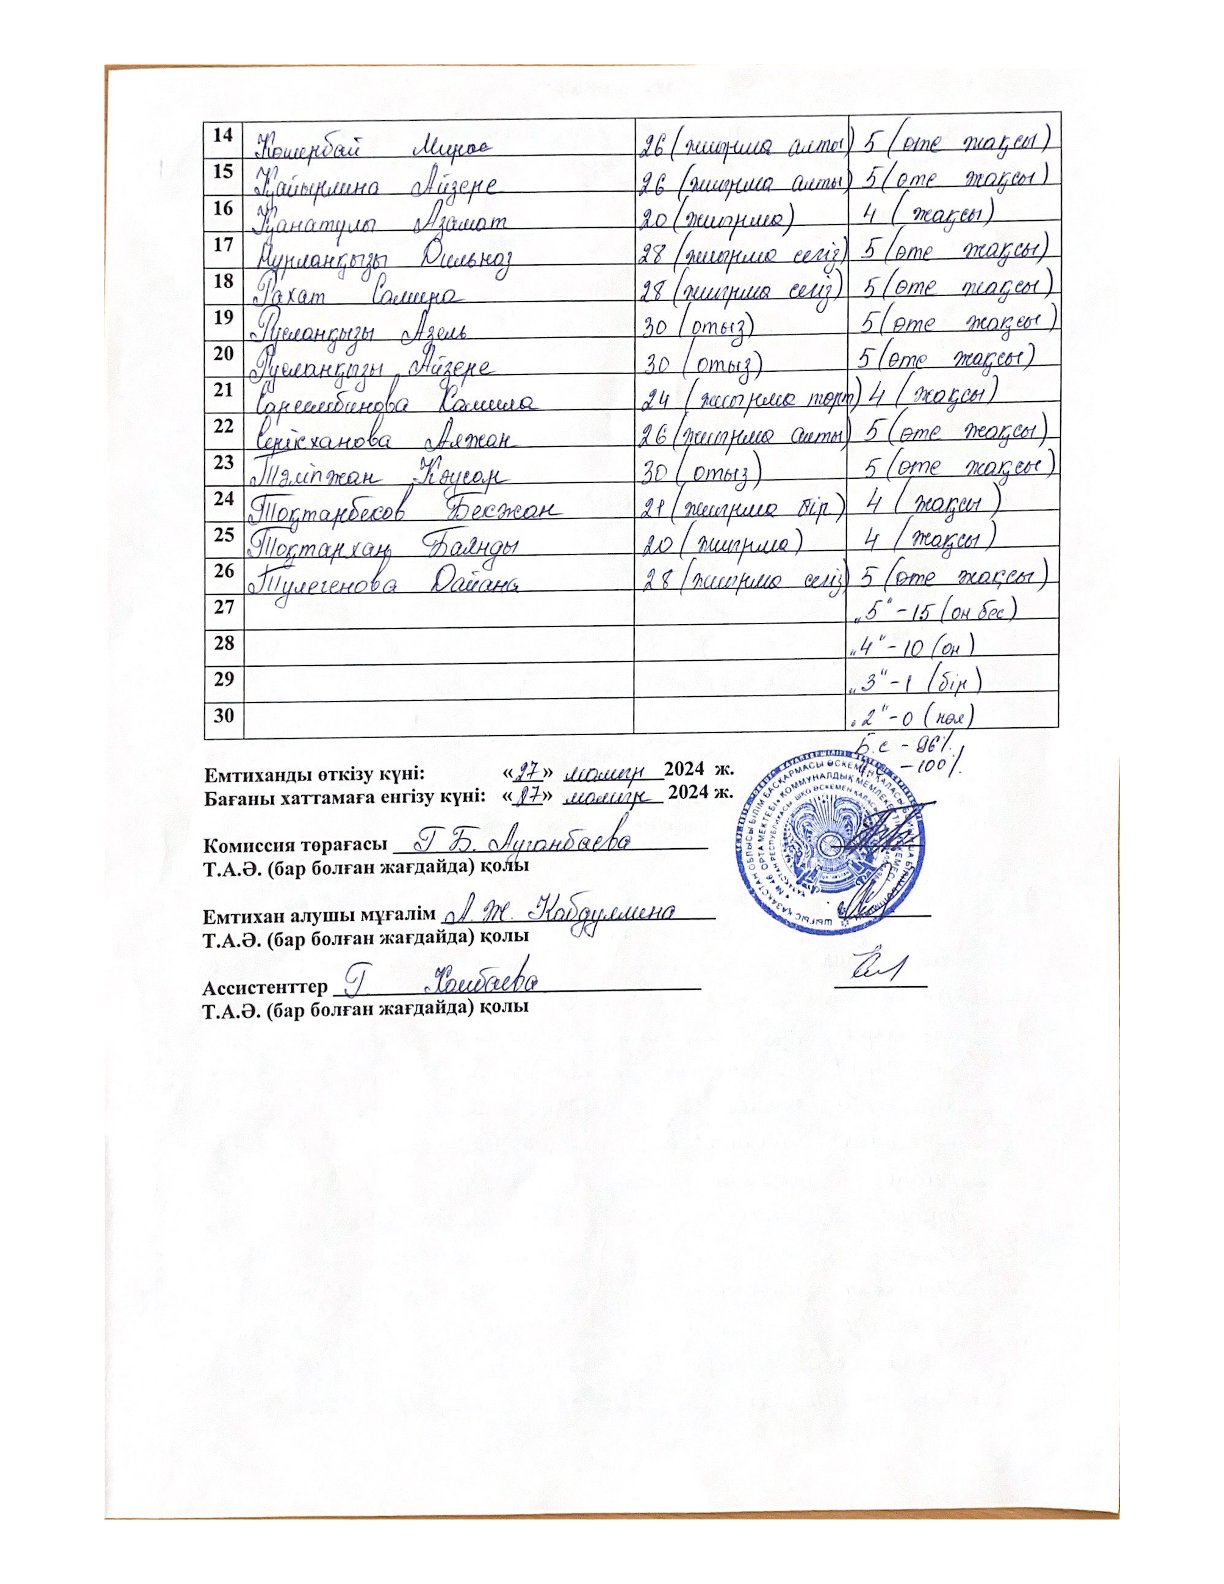 14 Кошербай Мирас 26 (жиырма алты) 5 (өте жақсы)
15 Қайырлина Айзере 26 (жиырма алты) 5 (өте жақсы)
16 Қанатұлы Азамат 20 (жиырма) 4 (жақсы)
17 Нұрланқызы Дильназ 28 (жиырма сегіз) 5 (өте жақсы)
18 Рахат Самира 28 (жиырма сегіз) 5 (өте жақсы)
19 Русланқызы Азель 30 (отыз) 5 (өте жақсы)
20 Русланқызы Айзере 30 (отыз) 5 (өте жақсы)
21 Камила 24 (жиырма төрт) 4 (жақсы)
22 Серікханова Аяжан 26 (жиырма алты) 5 (өте жақсы)
23 Тәліпжан Кәусар 30 (отыз) 5 (өте жақсы)
24 Тоқтарбеков Бекжан 21 (жиырма бір) 4 (жақсы)
25 Тоқтархан Баянды 20 (жиырма) 4 (жақсы)
26 Тулегенова Дайана 28 (жиырма сегіз) 5 (өте жақсы)
27 „5" - 15 (он бес)
28 „4" - 10 (он)
29 „3" - 1 (бір)
30 „2" - 0 (нөл)
Б.с - 96%
- 100%
Емтиханды өткізу күні: «27» мамыр 2024 ж.
Бағаны хаттамаға енгізу күні: «27» мамыр 2024 ж.
Комиссия төрағасы Г Б. Ауганбаева
Т.А.Ә. (бар болған жағдайда) қолы
Емтихан алушы мұғалім А. Ж. Кабдулмина
Т.А.Ә. (бар болған жағдайда) қолы
Ассистенттер Г.
Т.А.Ә. (бар болған жағдайда) қолы